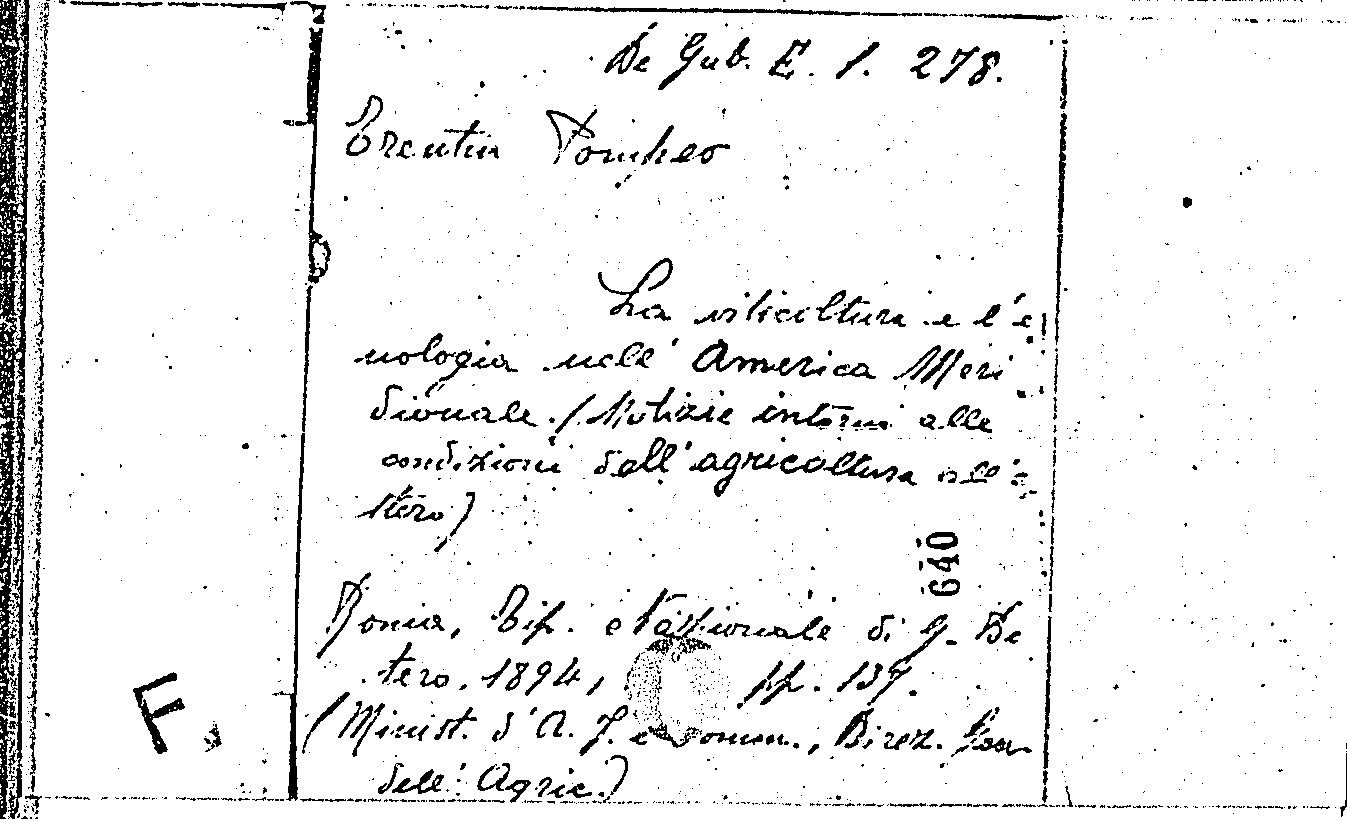 De Gub. E. 1. 278.
Trentin Pompeo
La viticoltura e l'e
nologia nell'America Meri
dionale. (Notizie intorno alle
condizioni dell'agricoltura all'e
stero)
640
Roma, Tip. Nazionale di G. Be
tero. 1894, pp. 137.
(Minist. d'A. I. e Comm., Direz. Gen
dell'Agric.)
F.